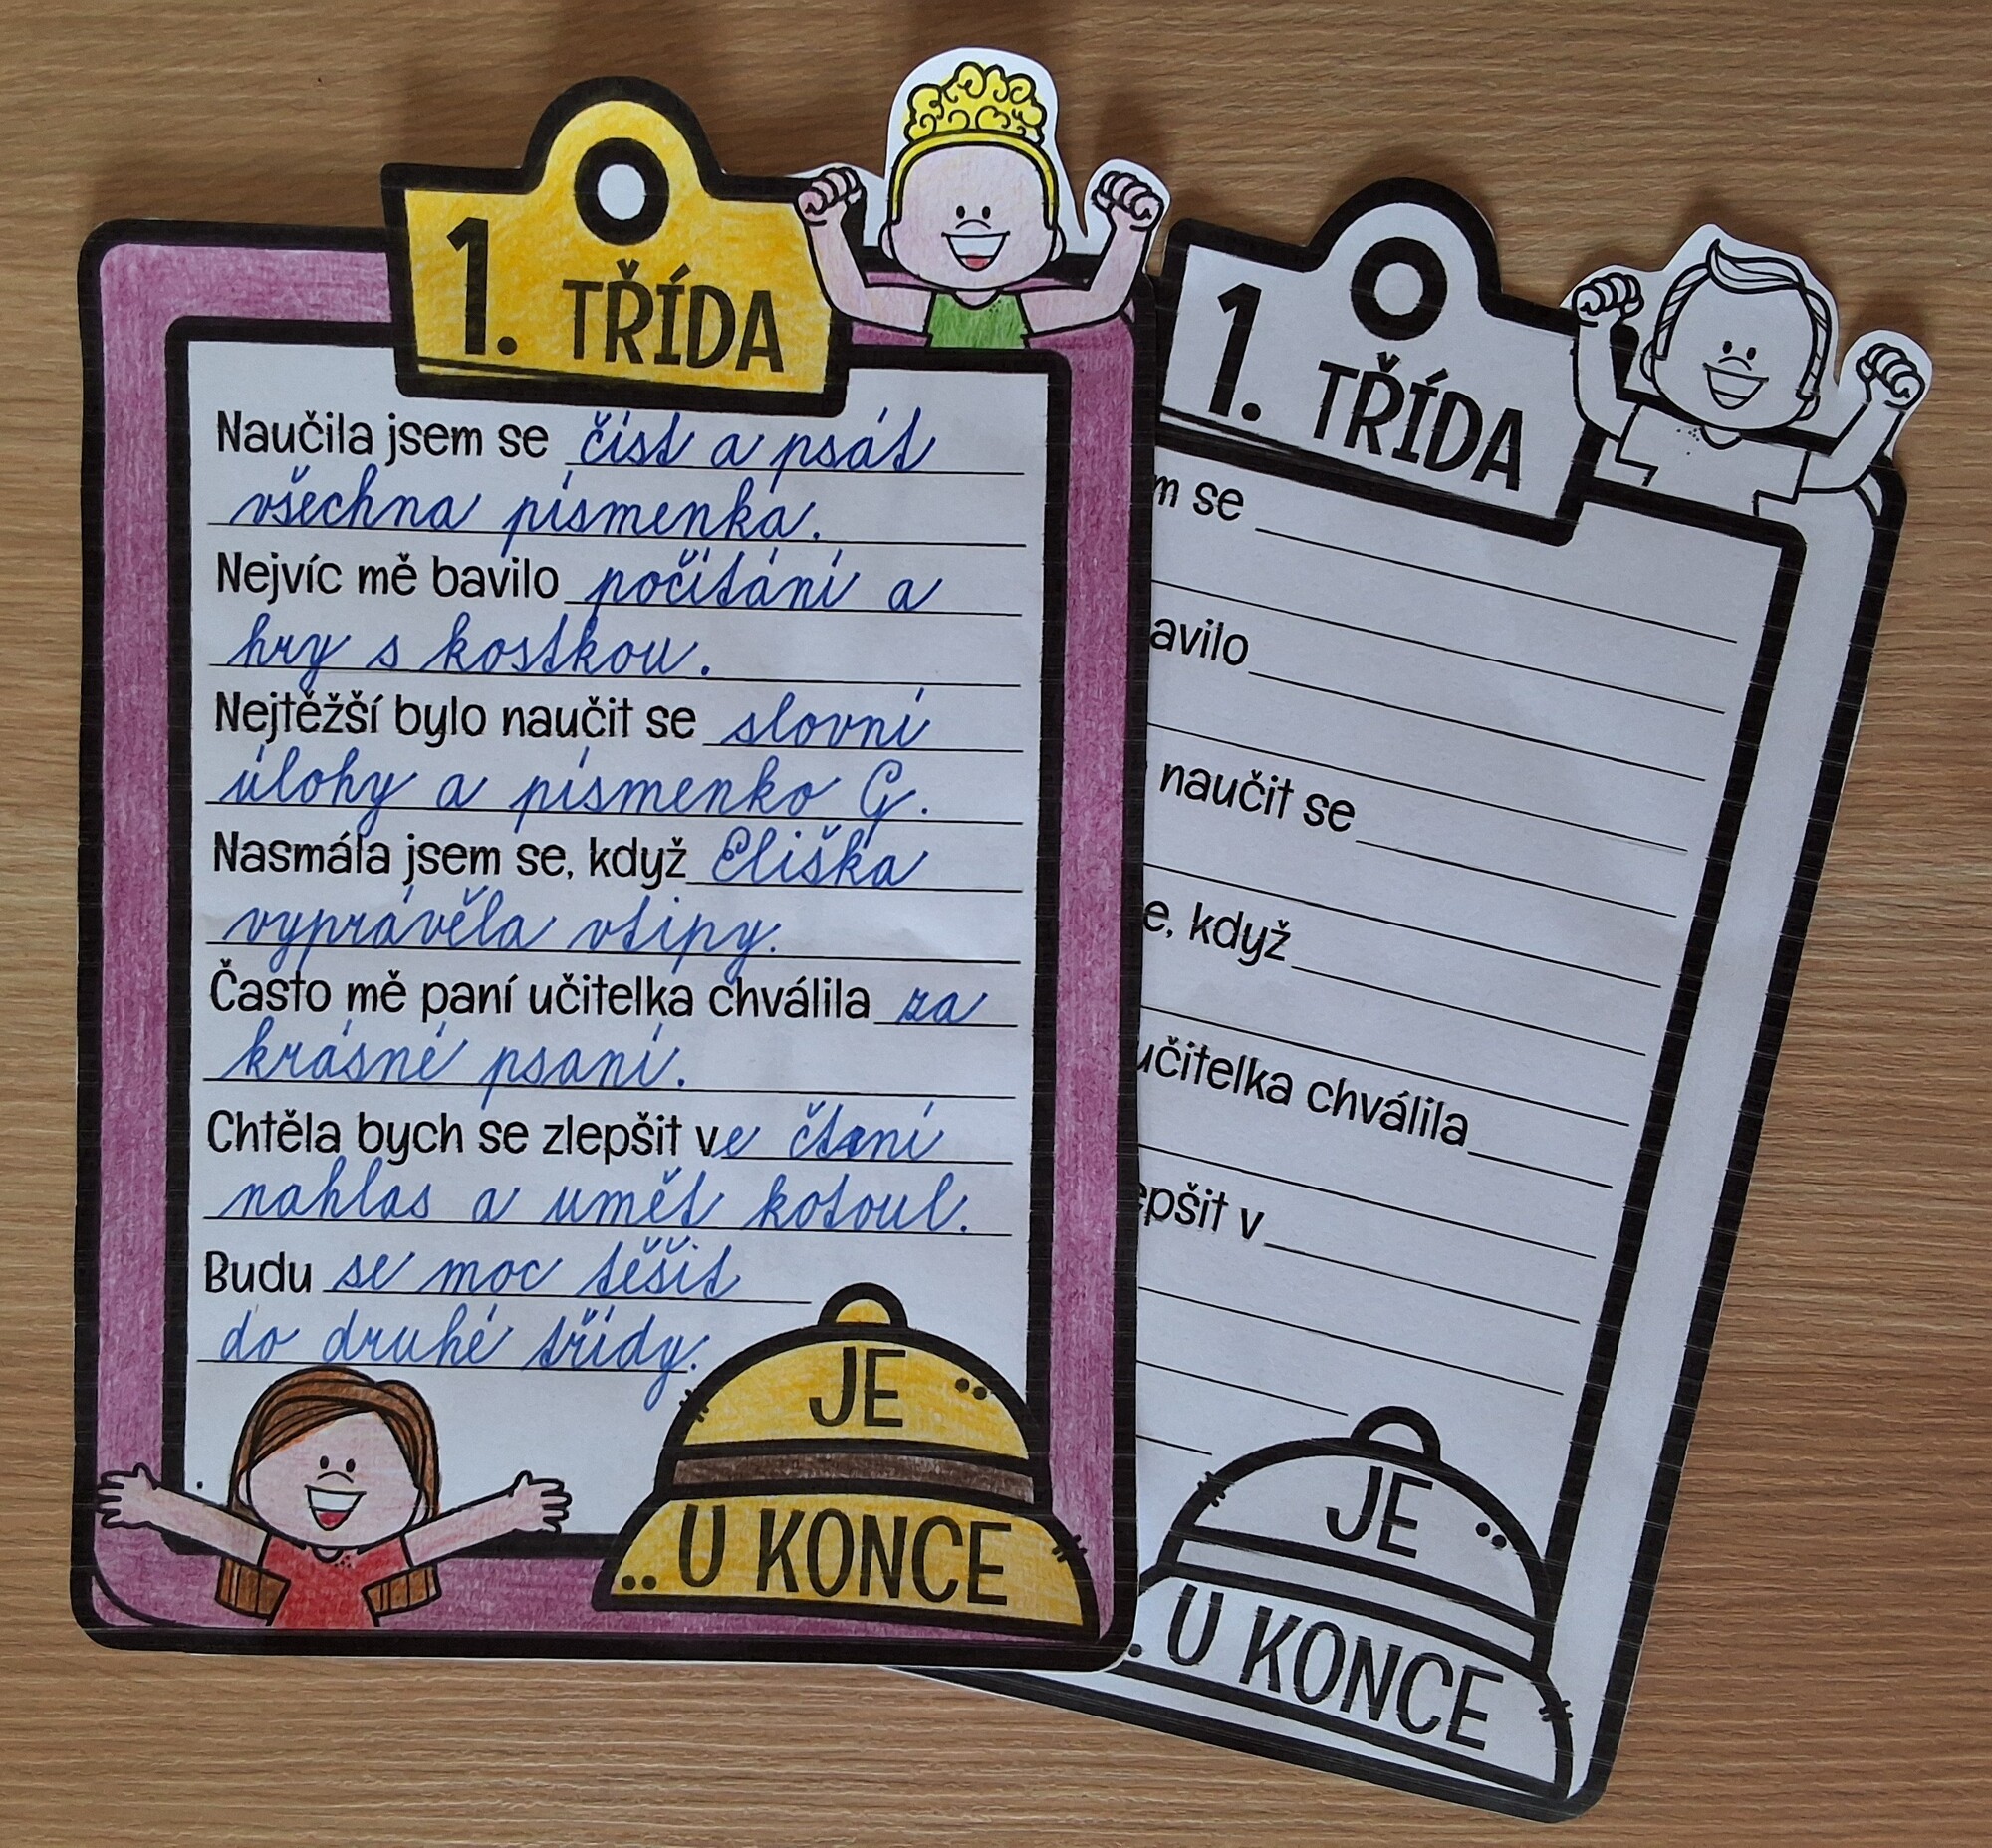 1. TŘÍDA
Naučila jsem se číst a psát
všechna písmenka.
Nejvíc mě bavilo počítání a
hry s kostkou.
Nejtěžší bylo naučit se slovní
úlohy a písmenko G.
Nasmála jsem se, když Eliška
vyprávěla vtipy.
Často mě paní učitelka chválila za
krásné psaní.
Chtěla bych se zlepšit ve čtení
nahlas a umět kotoul.
Budu se moc těšit
do druhé třídy.
JE
U KONCE
1. TŘÍDA
m se
avilo
naučit se
e, když
učitelka chválila
epšit v
JE
U KONCE